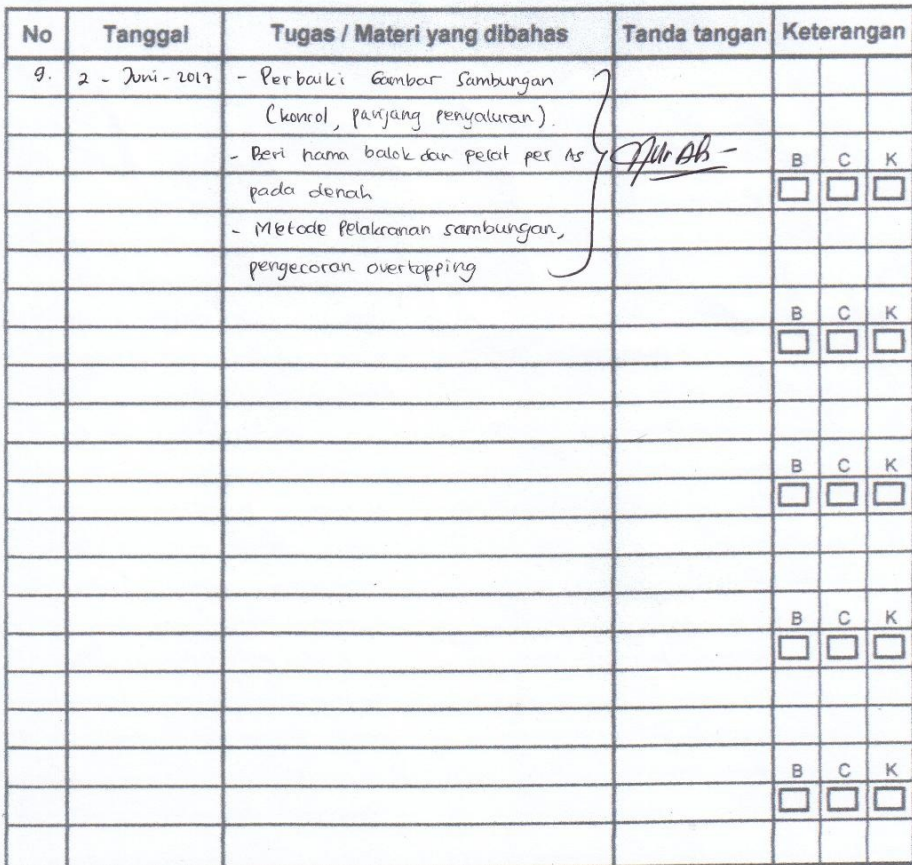 No Tanggal Tugas / Materi yang dibahas Tanda tangan Keterangan
9. 2 - Juni - 2017 - Perbaiki Gambar Sambungan
(koncol, panjang penyaluran).
- Beri nama balok dan pelat per As
B C K
pada denah
- Metode Pelaksanan sambungan,
pengecoran overtopping
B C K
B C K
B C K
B C K